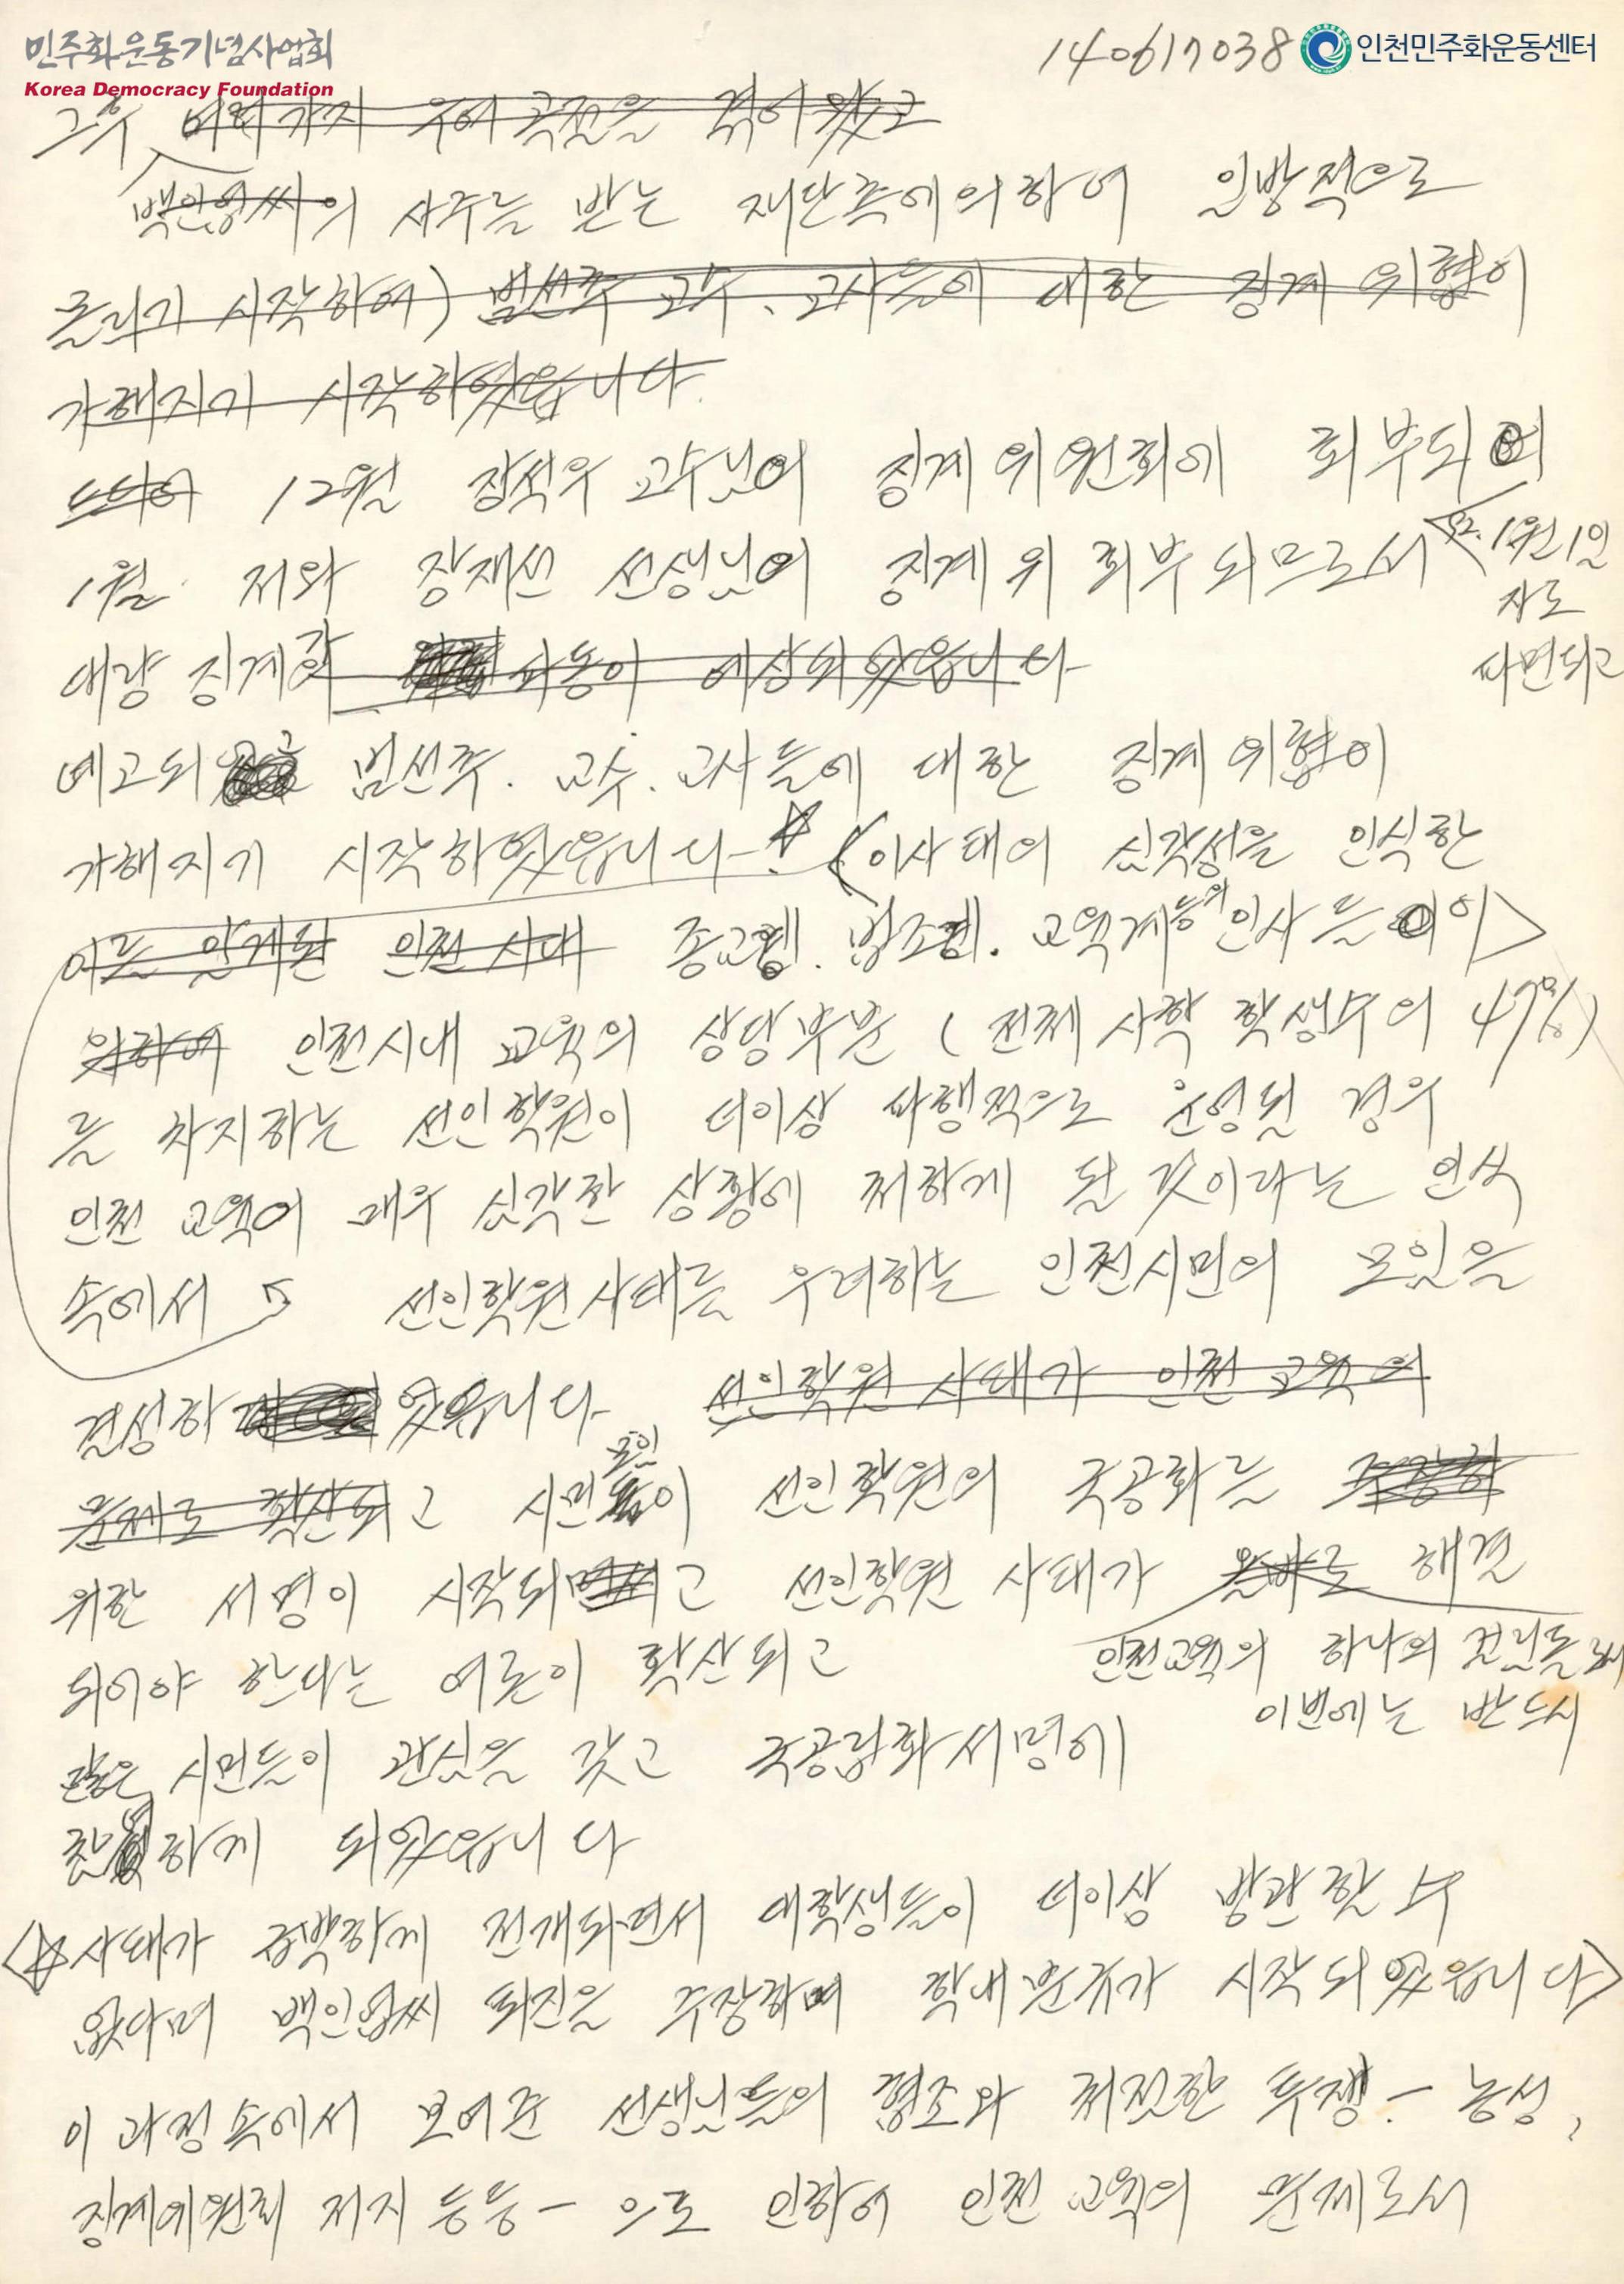 민주화운동기념사업회
Korea Democracy Foundation
140617038 인천민주화운동센터
그후 여러가지 우여곡절을 겪어왔고
백인엽씨의 사주를 받는 재단측에의하여 일방적으로
몰리기 시작하여) 범선추 교수、교사들에 대한 징계 위협이
가해지기 시작하였읍니다.
드디어 12월 장석우 교수님이 징계위원회에 회부되어
92. 1월 1일
자로
파면되고
1월 저와 장재선 선생님이 징계위 회부되므로서
대량 징계가 파동이 예상되었읍니다
예고되고 범선추. 교수. 교사들에 대한 징계위협이
가해지기 시작하였읍니다. ☆ (이사태의 심각성을 인식한
이를 알게된 인천 시내 종교계. 법조계. 교육계등의 인사들이
위하여 인천시내 교육의 상당부분 ( 전체 사학 학생수의 47%)
를 차지하는 선인학원이 더이상 파행적으로 운영될 경우
인천 교육이 매우 심각한 상황에 처하게 될 것이라는 인식
속에서 선인학원사태를 우려하는 인천시민의 모임을
결성하였읍니다 선인학원 사태가 인천 교육의
문제로 확산되고 시민모임이 선인학원의 국공화를
위한 서명이 시작되고 선인학원 사태가 올바로 해결
인천교육의 하나의 걸림돌
이번에는 반드시
되어야 한다는 여론이 확산되고
많은 시민들이 관심을 갖고 국공립화서명에
참여하게 되었읍니다
☆사태가 긴박하게 전개되면서 대학생들이 더이상 방관할 수
없다며 백인엽씨 퇴진을 주장하며 학내분규가 시작되었읍니다
이 과정속에서 보여준 선생님들의 협조와 처절한 투쟁 - 농성,
징계위원회 저지 등등 - 으로 인하여 인천 교육의 문제로서